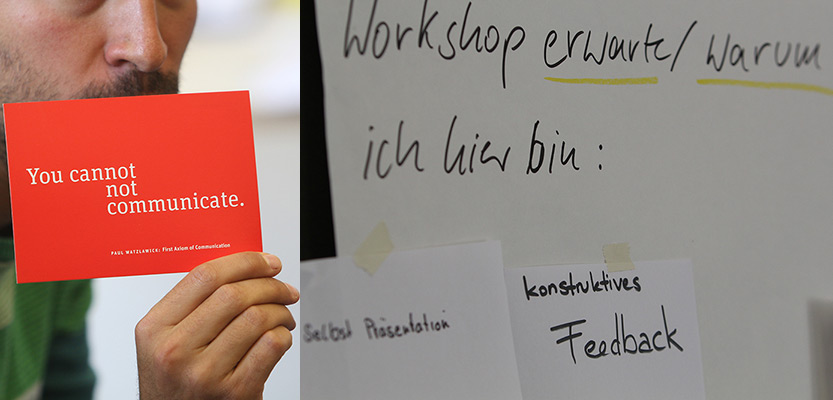 You cannot
not
communicate.
PAUL WATZLAWICK: First Axiom of Communication
Workshop erwarte/warum
ich hier bin:
Selbst Präsentation
konstruktives
Feedback